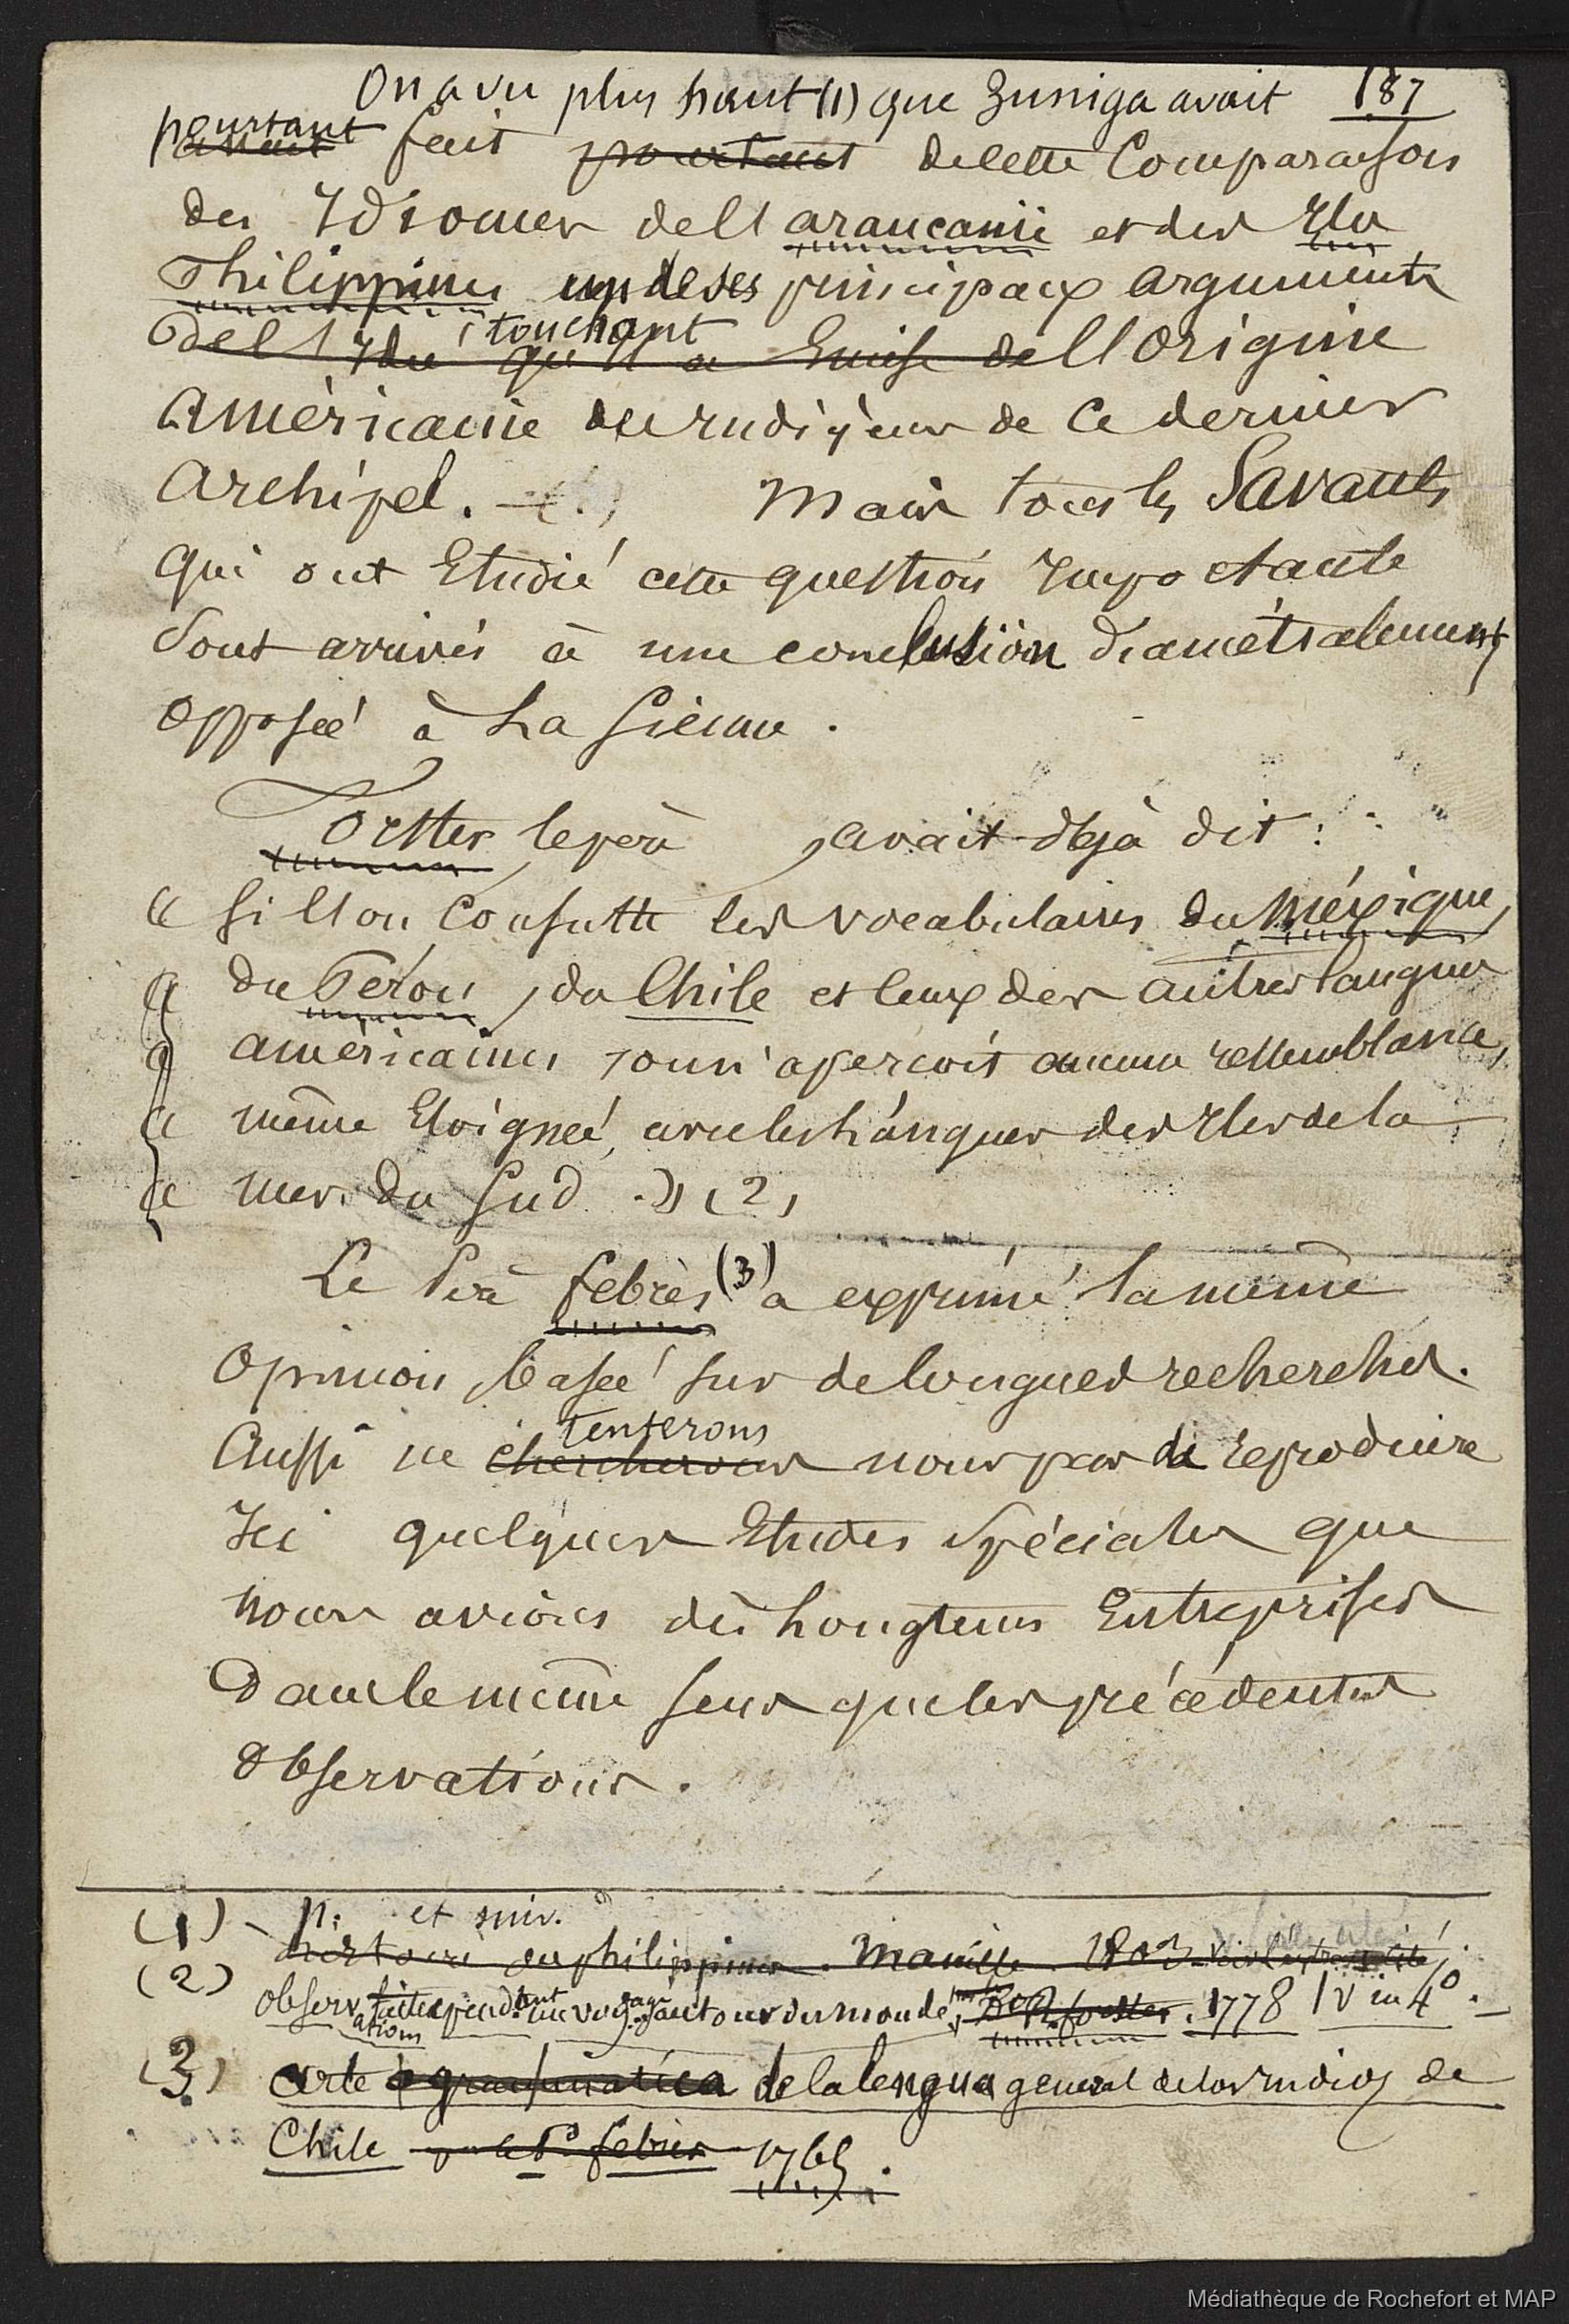 On a vu plus haut (1) que Zuniga avait 187
pourtant fait pourtant de cette Comparaison
des Idiomes de l'araucanie et des Iles
Philippines un de ses principaux arguments
de l'Idée qu'il a Emise de touchant l'Origine
Américaine des Indigènes de Ce dernier
Archipel. Mais tous les Savants
qui ont Etudié cette question Importante
Sont arrivés à une conclusion diamétralement
opposée à La Sienne.
Forster le père, avait déjà dit :
« Si l'on Consulte les vocabulaires du Méxique,
« du Pérou, du Chile et ceux des autres langues
« américaines, on n'aperçoit aucune ressemblance,
« même Eloignée, avec les Langues des Iles de la
« mer du Sud. » (2)
Le Père febrès (3) a exprimé la même
Opinion, basée sur de longues recherches.
Aussi ne chercherons tenterons nous pas de reproduire
Ici quelques Etudes Spéciales que
nous avions dès Longtems Entreprises
Dans le même sens que les précédentes
Observations.
(1) - p. et suiv.
histoire des philippines. Manille. 1803
(2) observations faites pendant un voyage autour du monde, 1778 1 V in 4°.
(3) arte de la lengua general de los Indios de
Chile par le P. febrès 1765.
Médiathèque de Rochefort et MAP